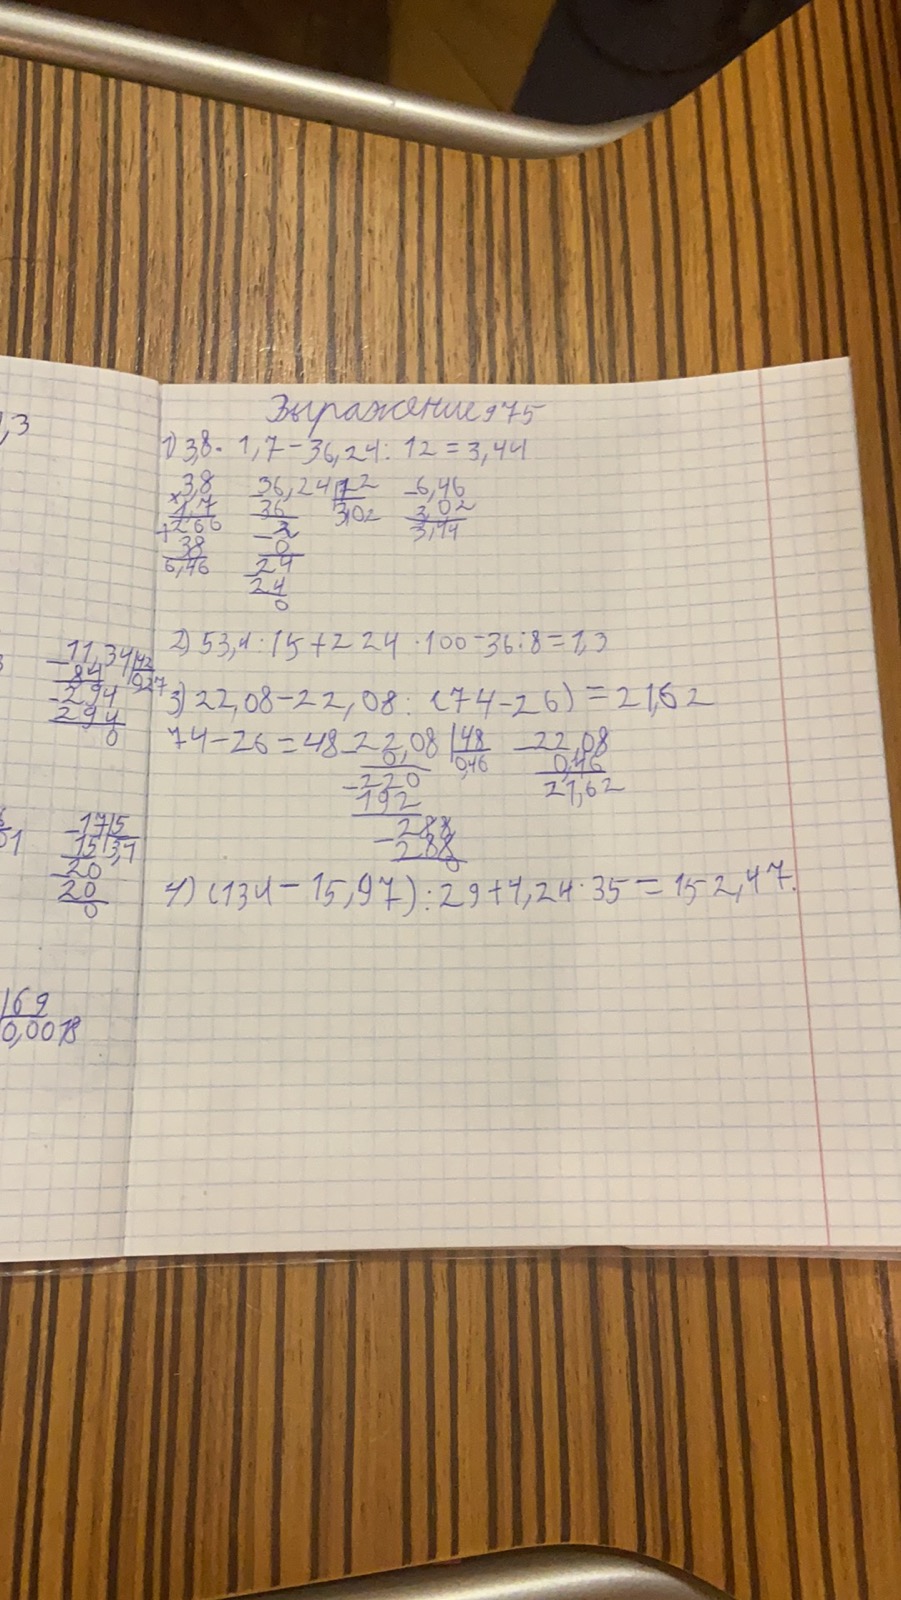 1,3
Выражение 975
1) 3,8 · 1,7 - 36,24 : 12 = 3,44
3,8
× 1,7
+ 266
38
6,46
36,24 | 12
36 3,02
- 2
0
24
24
0
- 6,46
3,02
3,44
2) 53,4 : 15 + 224 · 100 - 36 : 8 = 1,3
3) 22,08 - 22,08 : (74 - 26) = 21,62
74 - 26 = 48
22,08 | 48
0, 0,46
- 220
192
- 288
288
0
- 22,08
0,46
21,62
4) (134 - 15,97) : 29 + 4,24 · 35 = 152,47.
- 11,34 | 42
84 0,27
- 2,94
294
0
- 17 | 5
15 3,4
- 20
20
0
| 69
0,0018